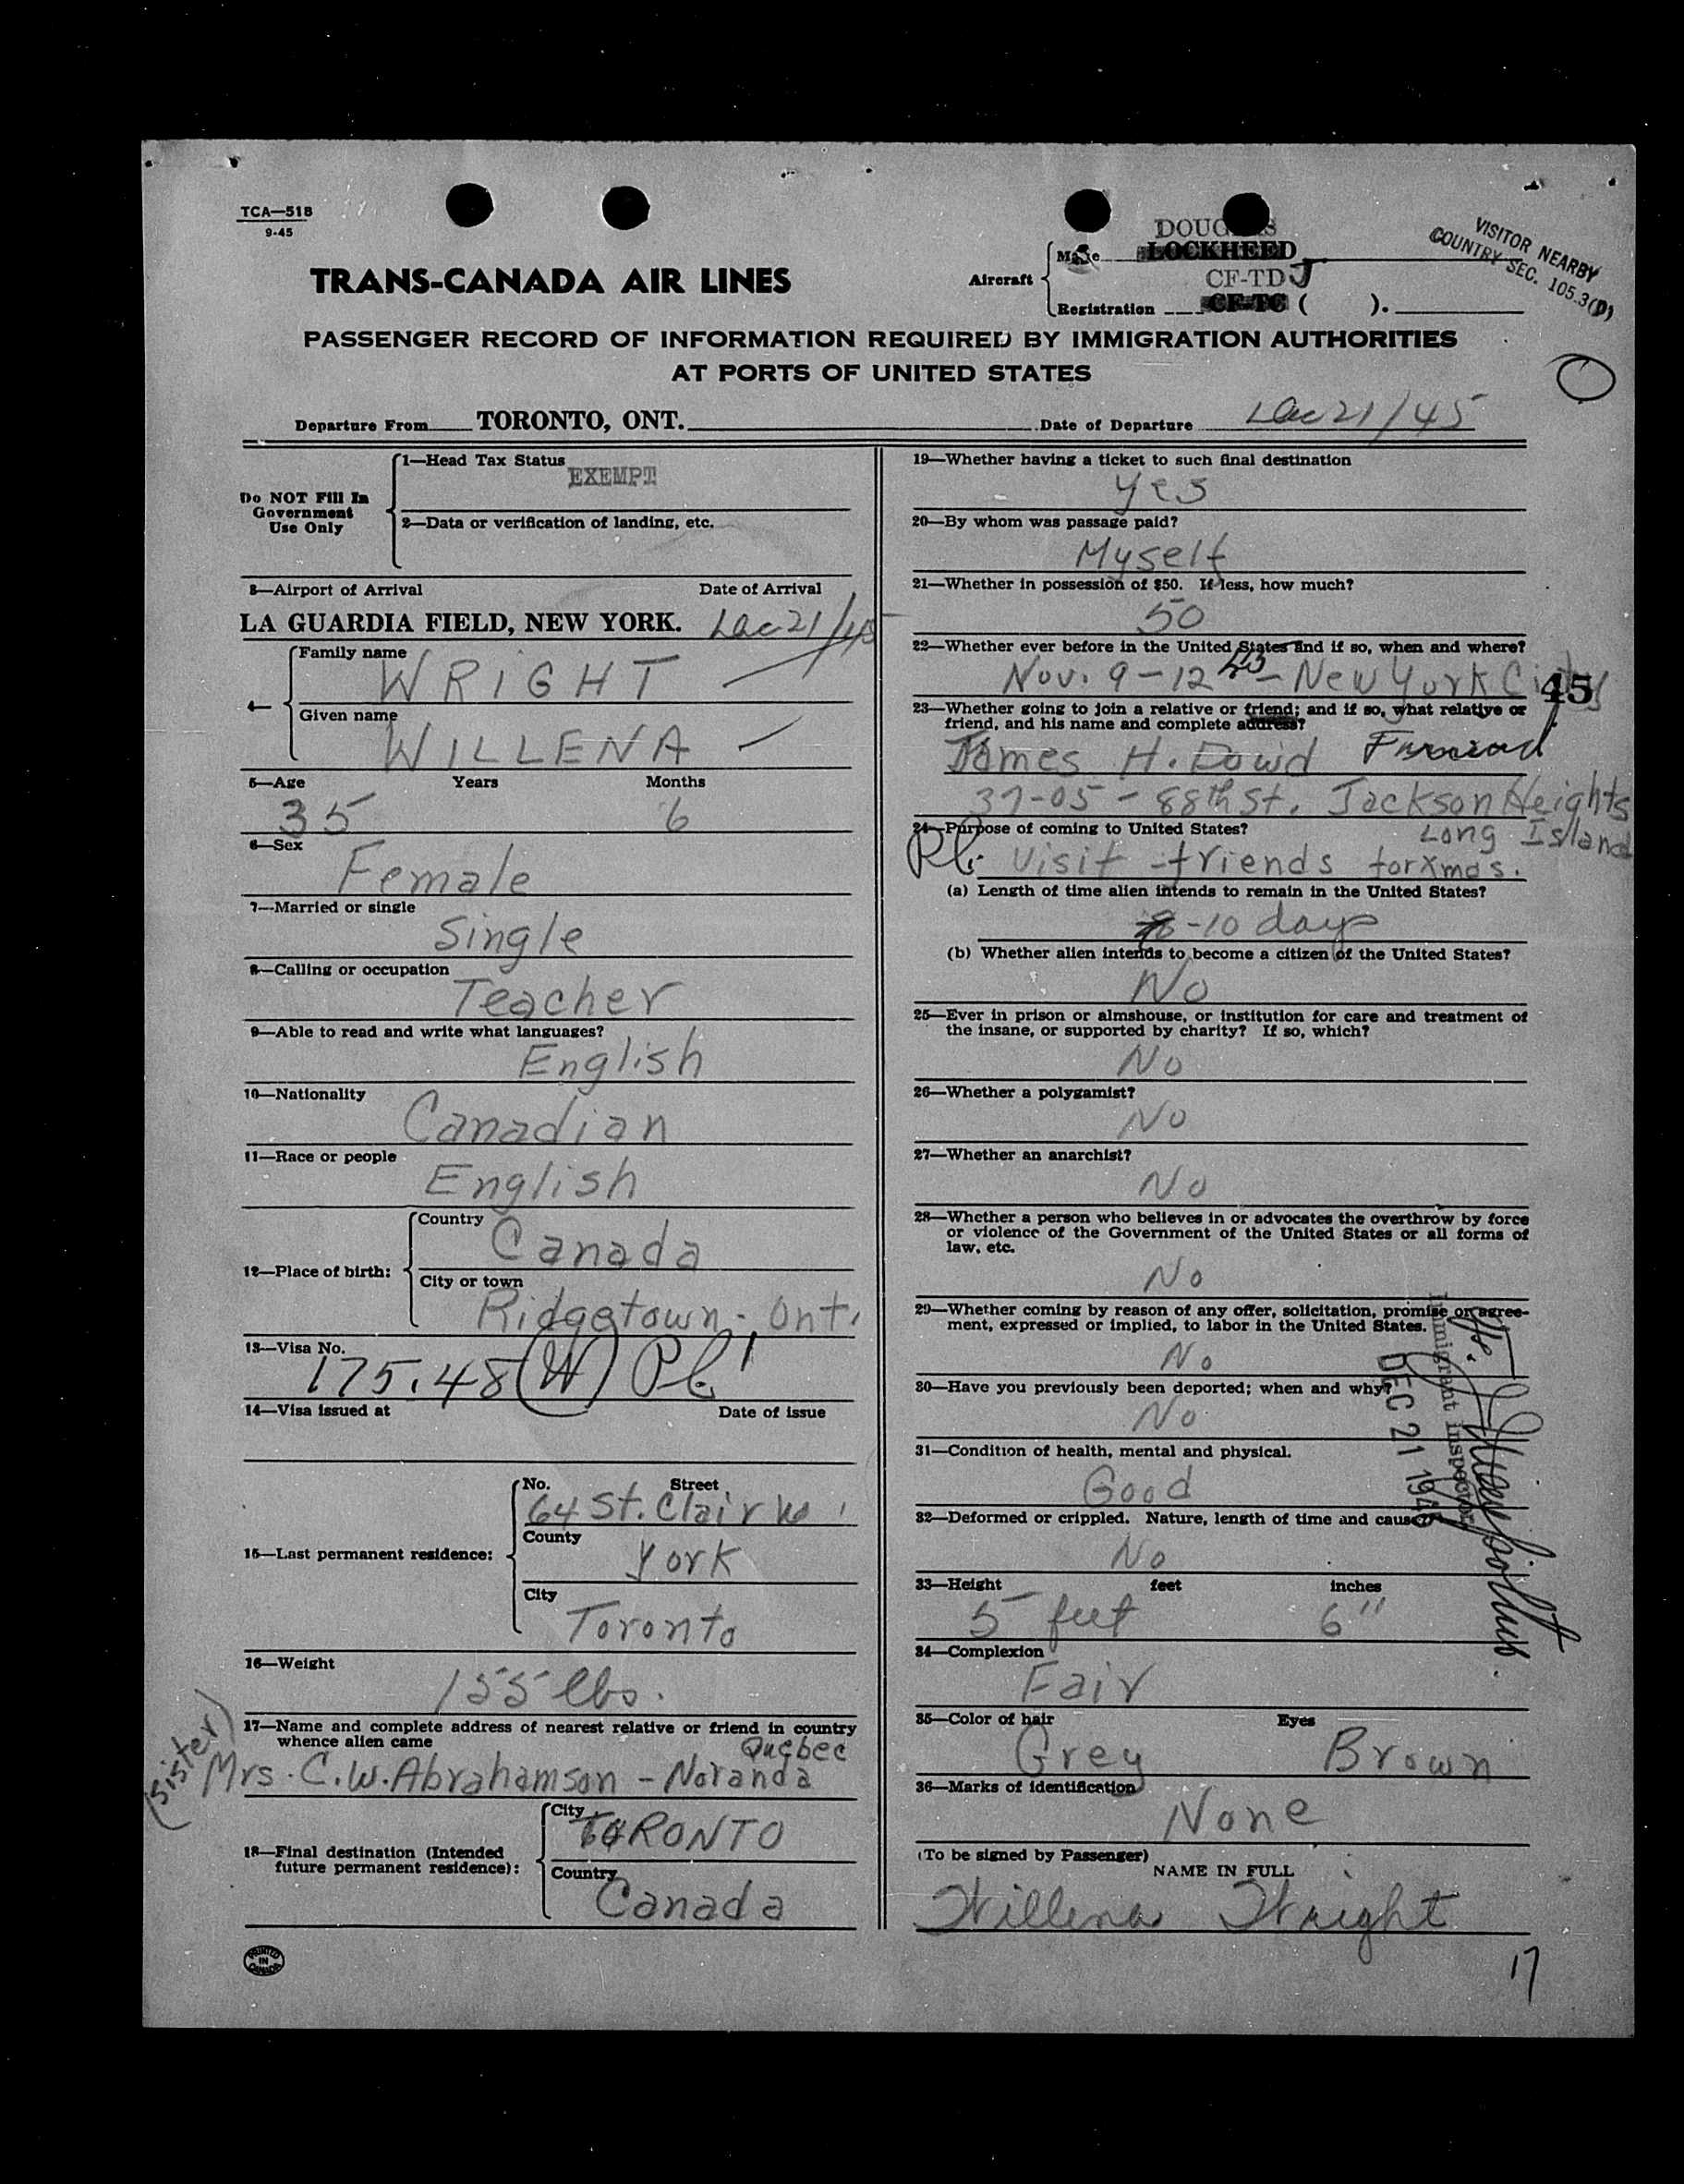 TCA—518
9-45
DOUGLAS
Aircraft
Make LOCKHEED
CF-TDJ
Registration CF-TC ( ).
VISITOR NEARBY
COUNTRY SEC. 105.3(D)
TRANS-CANADA AIR LINES
PASSENGER RECORD OF INFORMATION REQUIRED BY IMMIGRATION AUTHORITIES
AT PORTS OF UNITED STATES
Departure From TORONTO, ONT. Date of Departure Dec 21/45
Do NOT Fill In
Government
Use Only
1—Head Tax Status
EXEMPT
2—Data or verification of landing, etc.
3—Airport of Arrival Date of Arrival
LA GUARDIA FIELD, NEW YORK. Dec 21/45
4—
Family name
WRIGHT
Given name
WILLENA
5—Age Years Months
35 6
6—Sex
Female
7—Married or single
Single
8—Calling or occupation
Teacher
9—Able to read and write what languages?
English
10—Nationality
Canadian
11—Race or people
English
12—Place of birth:
Country
Canada
City or town
Ridgetown - Ont.
13—Visa No.
175.48 (W) Pl
14—Visa issued at Date of issue
15—Last permanent residence:
No. Street
64 St. Clair W
County
York
City
Toronto
16—Weight
155 lbs.
17—Name and complete address of nearest relative or friend in country
whence alien came
Quebec
(Sister) Mrs. C.W. Abrahamson - Noranda
18—Final destination (Intended
future permanent residence):
City
TORONTO
Country
Canada
PRINTED
IN
CANADA
19—Whether having a ticket to such final destination
Yes
20—By whom was passage paid?
Myself
21—Whether in possession of $50. If less, how much?
50
22—Whether ever before in the United States and if so, when and where?
Nov. 9-12 45 - New York City
45
23—Whether going to join a relative or friend; and if so, what relative or
friend, and his name and complete address?
James H. Friend
37-05 - 88th St. Jackson Heights
Long Island
24—Purpose of coming to United States?
Pl. Visit friends for Xmas.
(a) Length of time alien intends to remain in the United States?
8-10 days
(b) Whether alien intends to become a citizen of the United States?
No
25—Ever in prison or almshouse, or institution for care and treatment of
the insane, or supported by charity? If so, which?
No
26—Whether a polygamist?
No
27—Whether an anarchist?
No
28—Whether a person who believes in or advocates the overthrow by force
or violence of the Government of the United States or all forms of
law, etc.
No
29—Whether coming by reason of any offer, solicitation, promise or agree-
ment, expressed or implied, to labor in the United States.
No
30—Have you previously been deported; when and why?
No
31—Condition of health, mental and physical.
Good
32—Deformed or crippled. Nature, length of time and cause?
No
Immigrant Inspector
DEC 21 1945
33—Height feet inches
5 feet 6"
34—Complexion
Fair
35—Color of hair Eyes
Grey Brown
36—Marks of identification
None
(To be signed by Passenger)
NAME IN FULL
Willena Wright
17